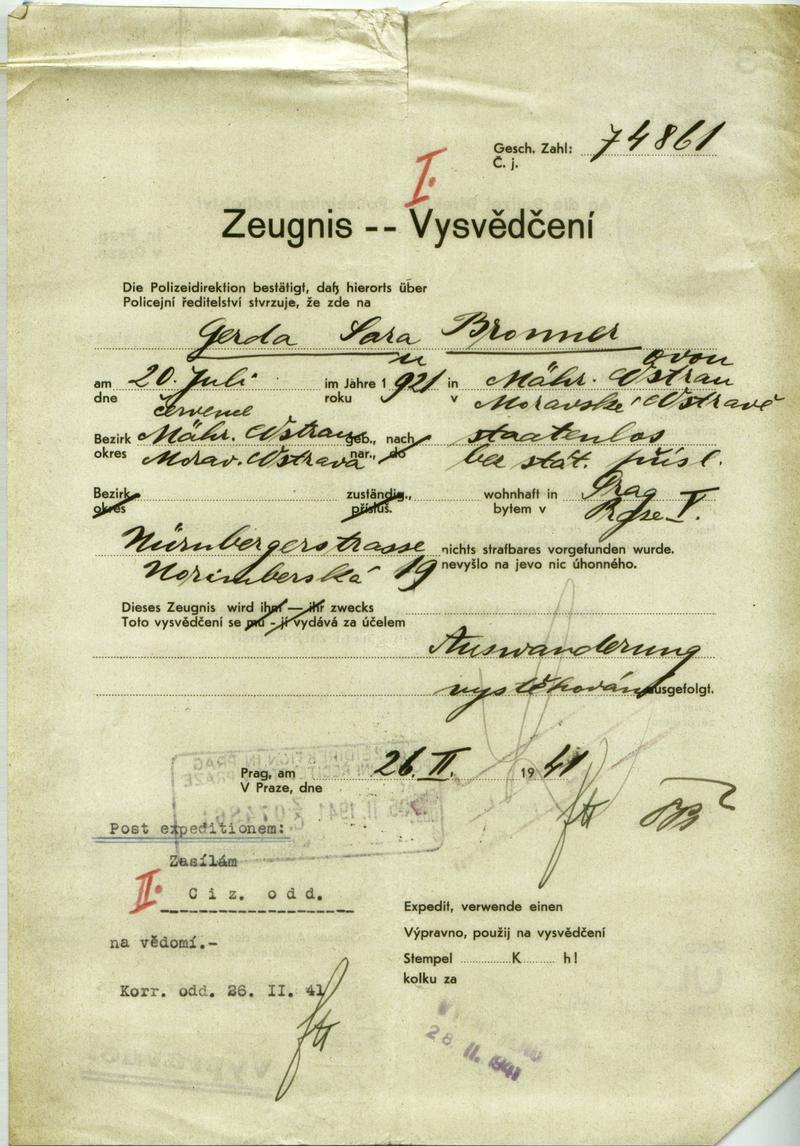 Gesch. Zahl: 74861
Č. j.
I.
Zeugnis -- Vysvědčení
Die Polizeidirektion bestätigt, daß hierorts über
Policejní ředitelství stvrzuje, že zde na
Gerda Sara Bronner
ovou
am 20. Juli im Jahre 1921 in Mähr. Ostrau
dne července roku v Moravské Ostravě
Bezirk Mähr. Ostrau geb., nach staatenlos
okres Morav. Ostrava nar., do bez stát. přísl.
Bezirk zuständig., wohnhaft in Prag
okres přísluš. bytem v Praze V.
Nürnbergerstrasse nichts strafbares vorgefunden wurde.
Norimberská 19 nevyšlo na jevo nic úhonného.
Dieses Zeugnis wird ihm — ihr zwecks
Toto vysvědčení se mu - jí vydává za účelem
Auswanderung
vystěhování ausgefolgt.
Prag, am 26. II. 1941
V Praze, dne
Post expeditionem:
Zasílám
II.
Ciz. odd.
na vědomí.-
Korr. odd. 26. II. 41
Expedit, verwende einen
Výpravno, použij na vysvědčení
Stempel K h!
kolku za
28. II. 1941